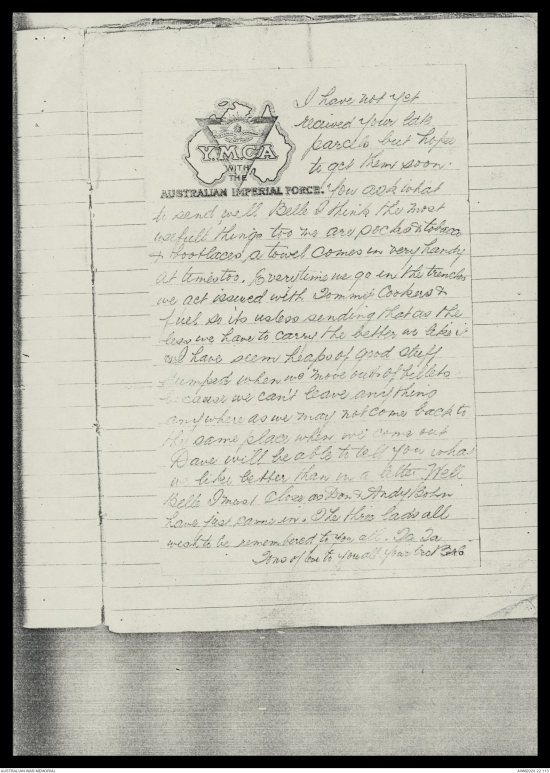 I have not yet
recieved your late
parcels but hope
to get them soon.
Y.M.C.A
WITH
THE
AUSTRALIAN IMPERIAL FORCE.
You ask what
to send well Belle I think the most
usefull things too me are socks & tobacco
& bootlaces, a towel comes in very handy
at times too. Everytime we go in the trenches
we are issued with Tommy Cookers &
fuel so its usless sending that as the
less we have to carry the better we like it
I have seen heaps of good stuff
dumped when we move out of billets
because we can't leave anything
anywhere as we may not come back to
the same place when we come out
Dave will be able to tell you what
we like better than in a letter Well
Belle I must close as Don & Andy
have just came in. The three lads all
wish to be remembered to you all. Ta Ta
Tons of love to you all your Bro Bob
AUSTRALIAN WAR MEMORIAL